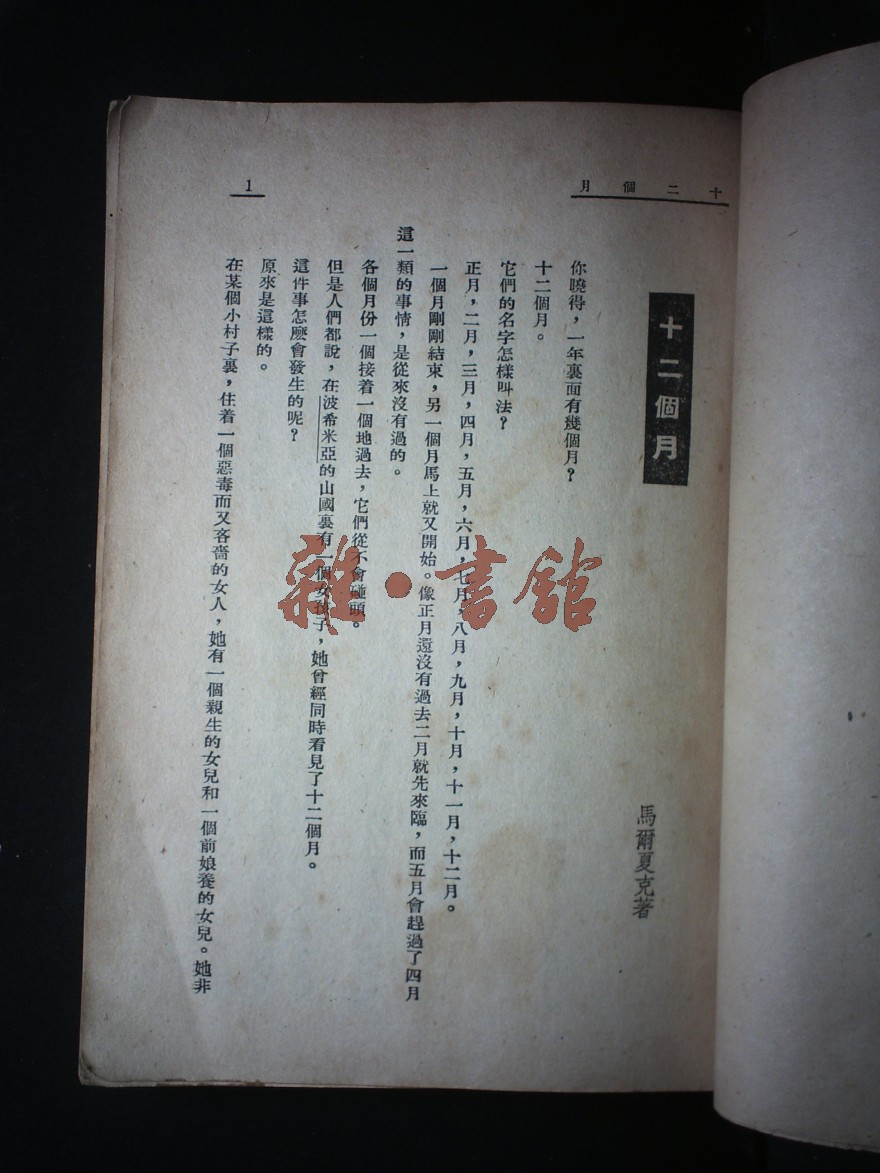 十二個月
1
十二個月
馬爾夏克著
你曉得，一年裏面有幾個月？
十二個月。
它們的名字怎樣叫法？
正月，二月，三月，四月，五月，六月，七月，八月，九月，十月，十一月，十二月。
一個月剛剛結束，另一個月馬上就又開始。像正月還沒有過去二月就先來臨，而五月會趕過了四月
這一類的事情，是從來沒有過的。
各個月份一個接着一個地過去，它們從不會碰頭。
但是人們都說，在波希米亞的山國裏有一個女孩子，她曾經同時看見了十二個月。
這件事怎麽會發生的呢？
原來是這樣的。
在某個小村子裏，住着一個惡毒而又吝嗇的女人，她有一個親生的女兒和一個前娘養的女兒。她非
雜·書館